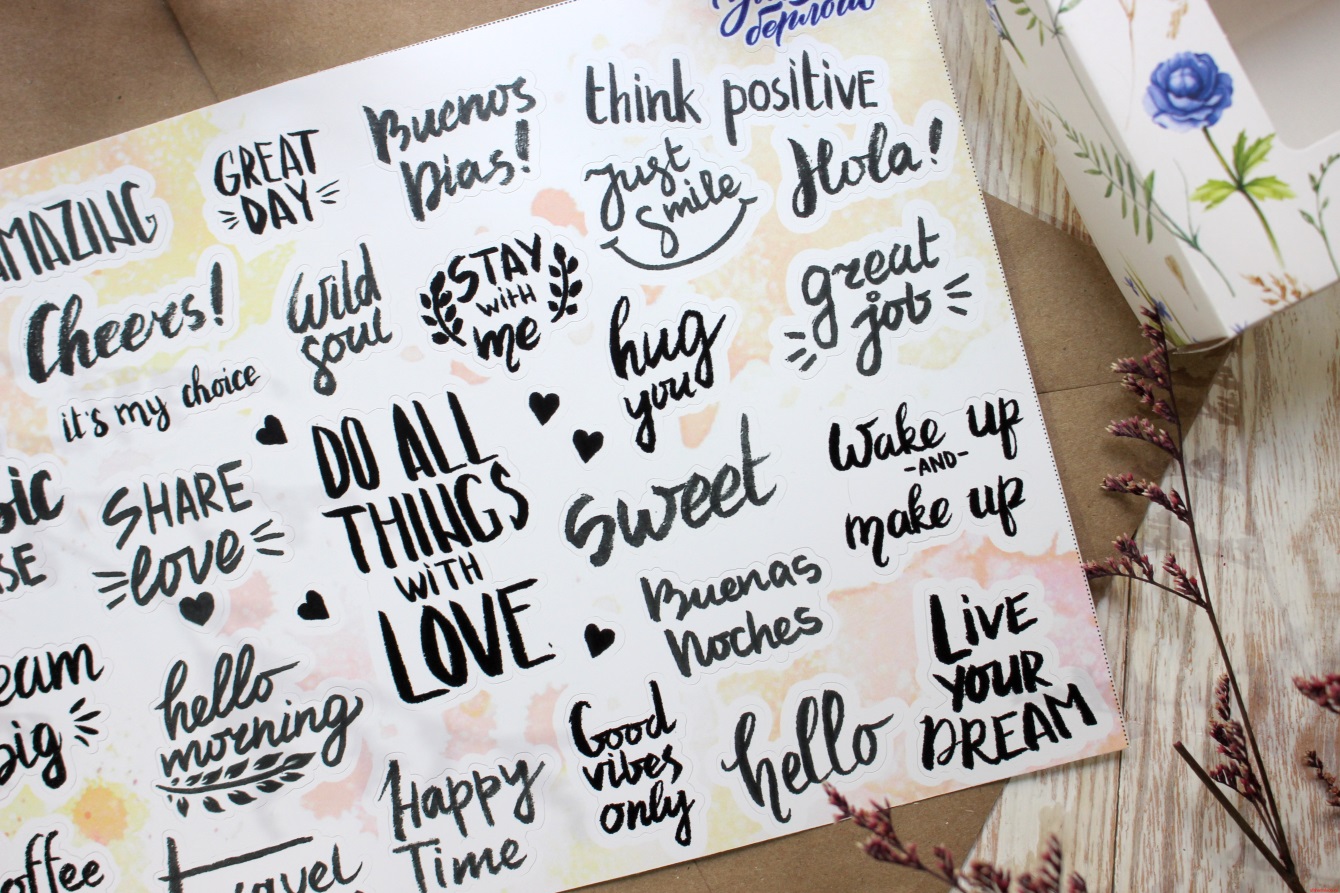 берлога
think positive
Buenos
Dias!
GREAT
DAY
AMAZING
Just
Smile
Hola!
Cheers!
Wild
soul
STAY
with
me
great
job
hug
you
it's my choice
DO ALL
THINGS
WITH
LOVE
SHARE
love
sweet
Wake up
-AND-
make up
Buenas
Noches
LIVE
YOUR
DREAM
eam
big
hello
morning
Good
vibes
only
hello
Happy
Time
offee
Travel